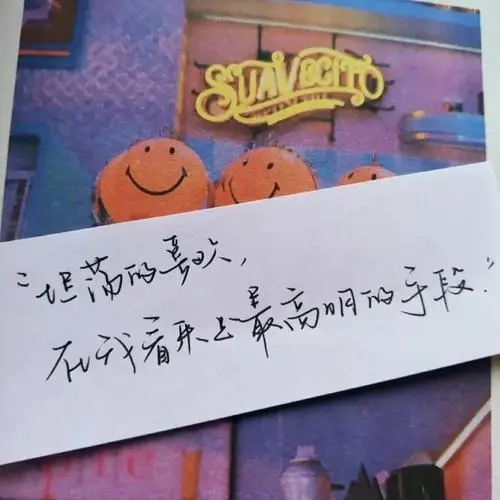 SUAVECITO
"坦荡的喜欢,
在我看来是最高明的手段."